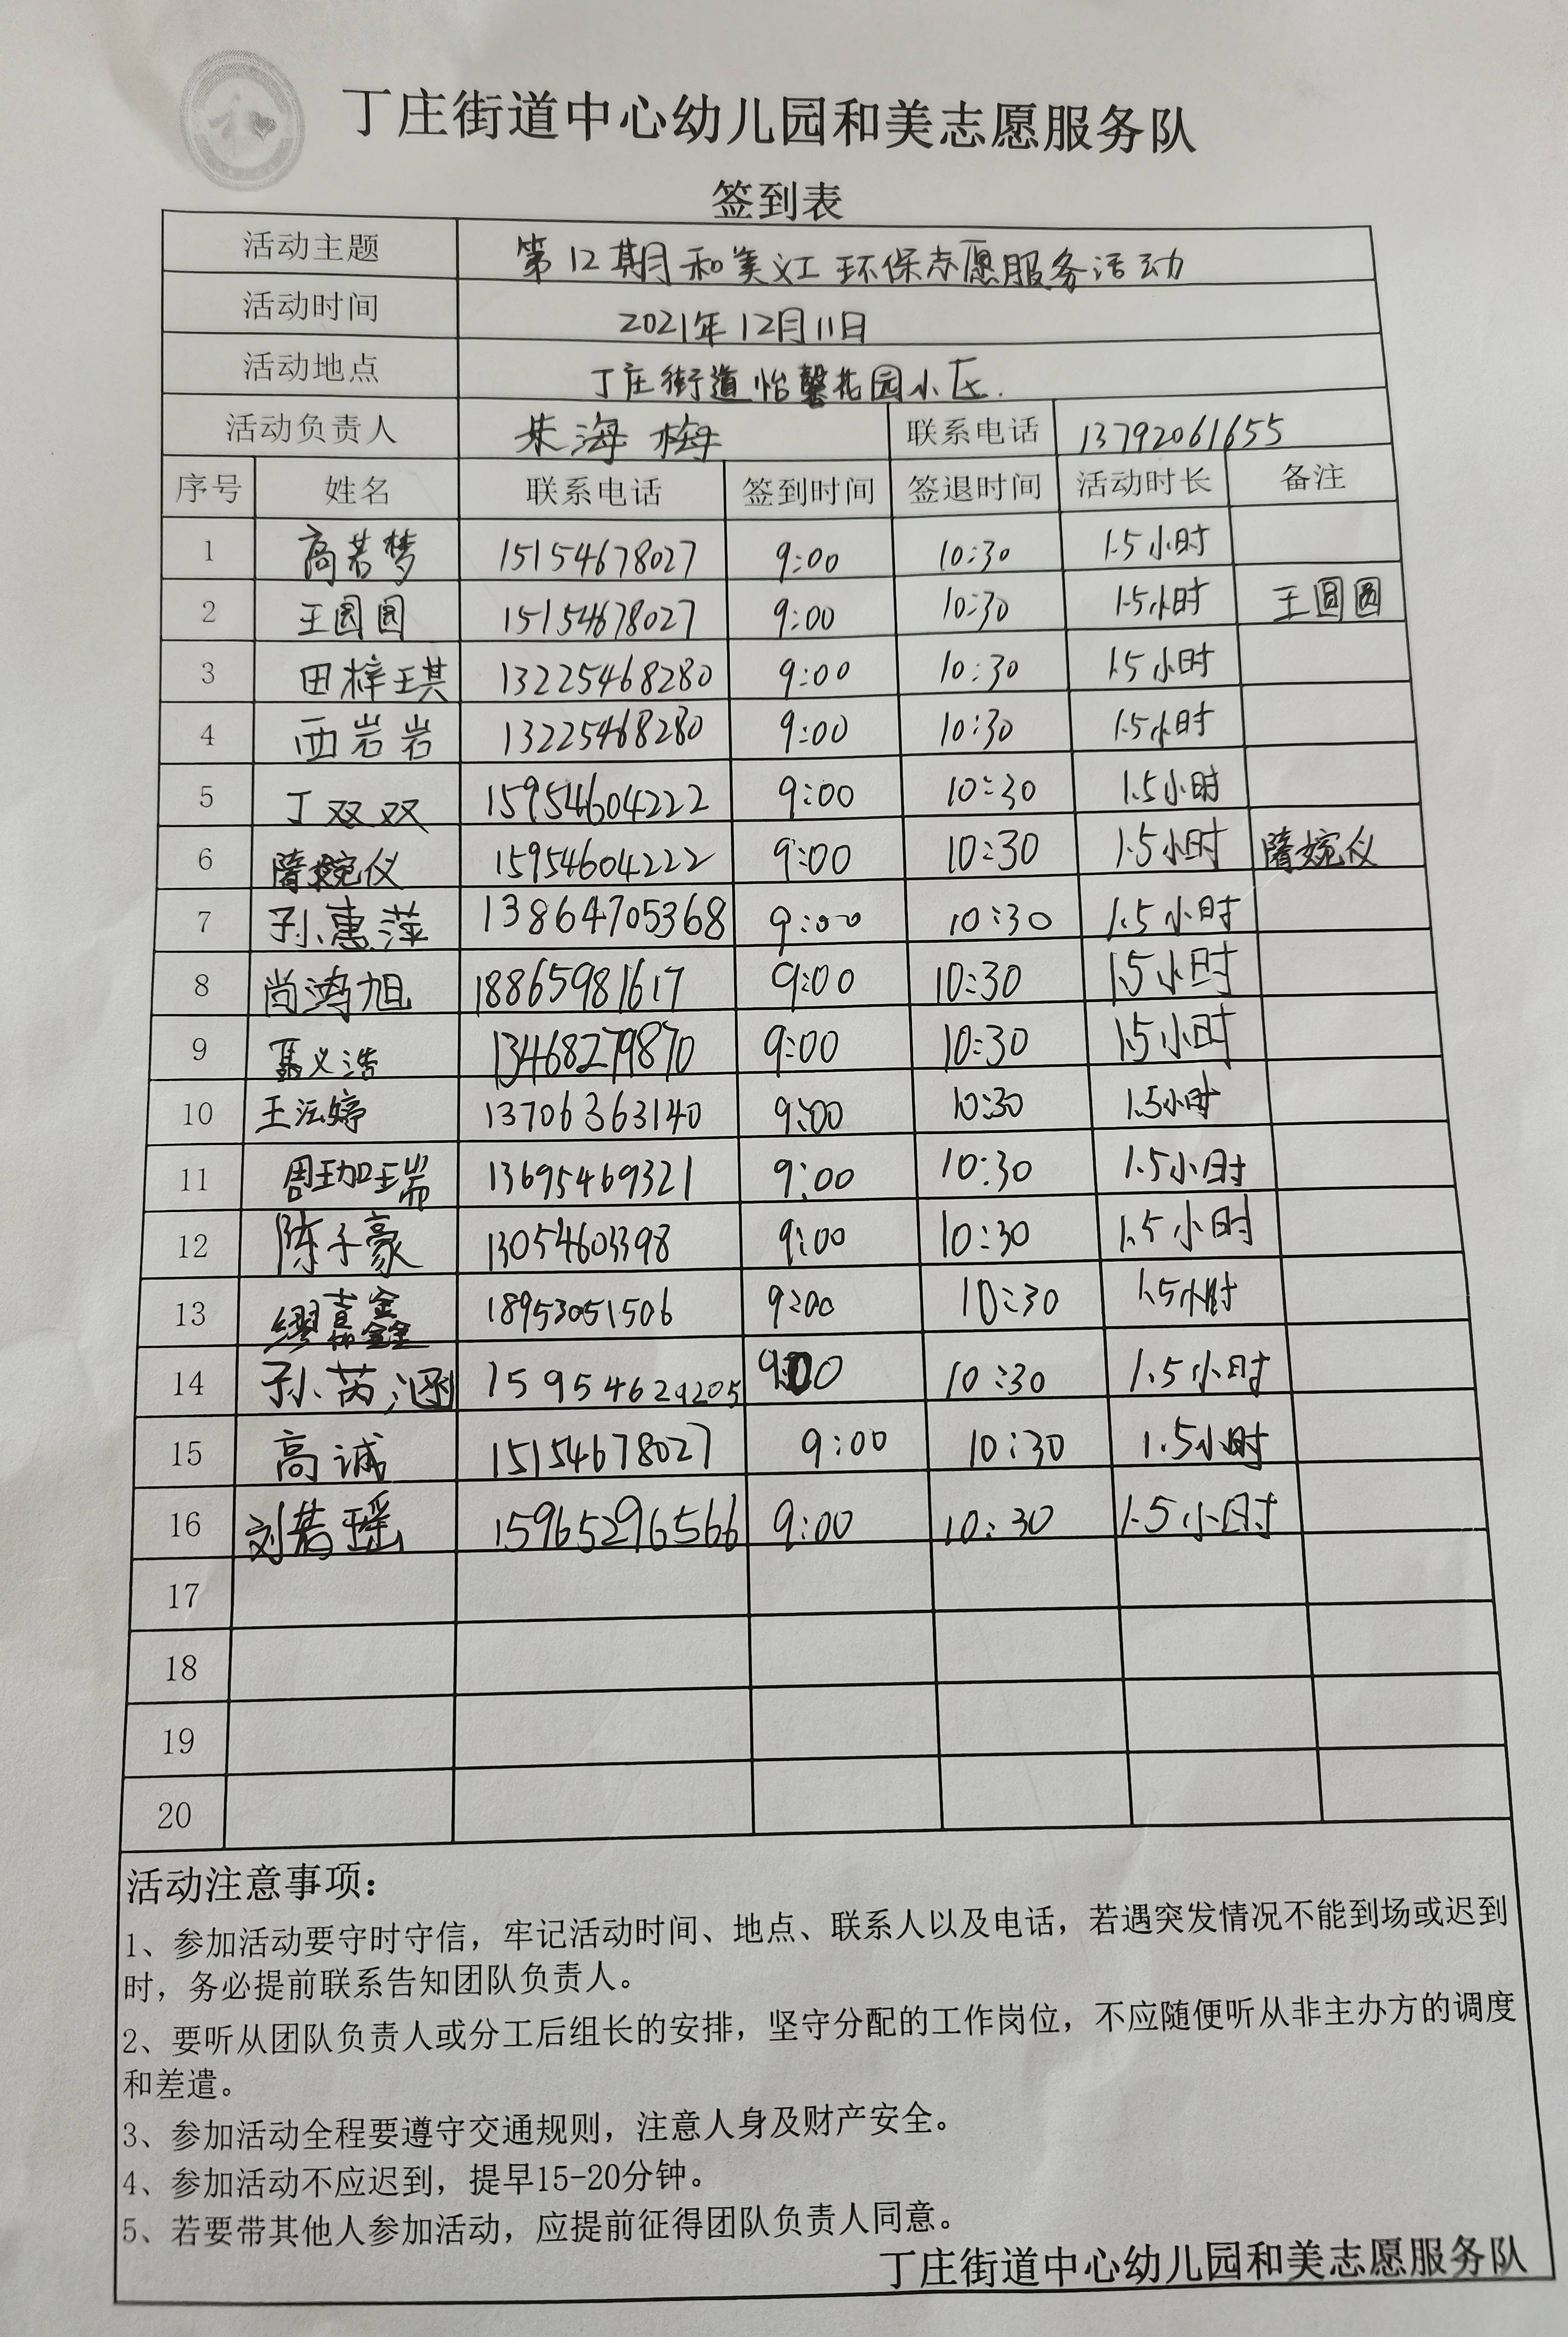 和
丁庄街道中心幼儿园和美志愿服务队
签到表
活动主题 第12期和美义工环保志愿服务活动
活动时间 2021年12月11日
活动地点 丁庄街道怡馨花园小区.
活动负责人 朱海梅 联系电话 13792061655
序号 姓名 联系电话 签到时间 签退时间 活动时长 备注
1 高若梦 15154678027 9:00 10:30 1.5小时
2 王圆圆 15154678027 9:00 10:30 1.5小时 王圆圆
3 田梓琪 13225468280 9:00 10:30 1.5小时
4 西岩岩 13225468280 9:00 10:30 1.5小时
5 丁双双 15954604222 9:00 10:30 1.5小时
6 隋婉仪 15954604222 9:00 10:30 1.5小时 隋婉仪
7 孙惠萍 13864705368 9:00 10:30 1.5小时
8 尚鸿旭 18865981617 9:00 10:30 1.5小时
9 义浩 13468279870 9:00 10:30 1.5小时
10 王沄婷 13706363140 9:00 10:30 1.5小时
11 周珈瑞 13695469321 9:00 10:30 1.5小时
12 陈子豪 13054603398 9:00 10:30 1.5小时
13 缪嘉鑫 18953051506 9:00 10:30 1.5小时
14 孙芮涵 15954629205 9:00 10:30 1.5小时
15 高诚 15154678027 9:00 10:30 1.5小时
16 刘若瑶 15965296566 9:00 10:30 1.5小时
17
18
19
20
活动注意事项：
1、参加活动要守时守信，牢记活动时间、地点、联系人以及电话，若遇突发情况不能到场或迟到
时，务必提前联系告知团队负责人。
2、要听从团队负责人或分工后组长的安排，坚守分配的工作岗位，不应随便听从非主办方的调度
和差遣。
3、参加活动全程要遵守交通规则，注意人身及财产安全。
4、参加活动不应迟到，提早15-20分钟。
5、若要带其他人参加活动，应提前征得团队负责人同意。
丁庄街道中心幼儿园和美志愿服务队